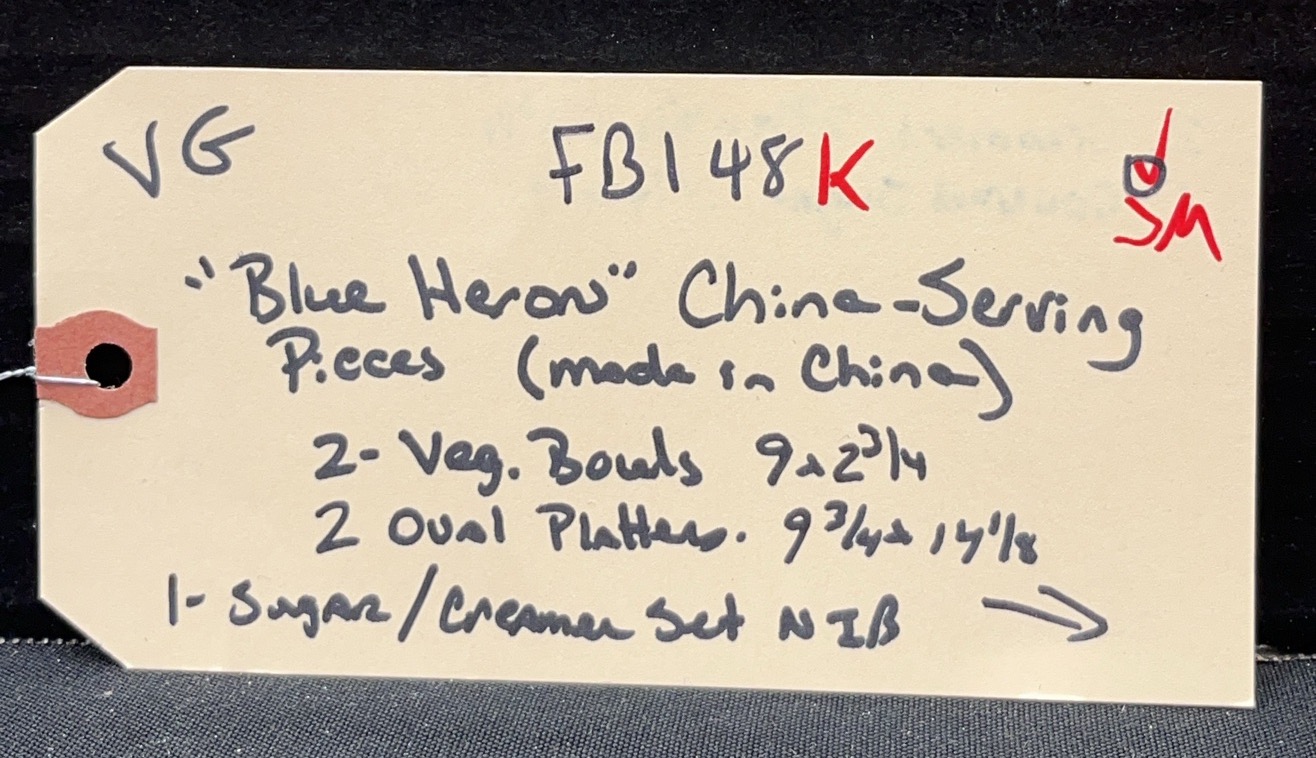 VG FB148K
SM
"Blue Heron" China-Serving
Pieces (made in China)
2- Veg. Bowls 9x2 3/4
2 Oval Platters. 9 3/4 x 14 1/8
1- Sugar/Creamer Set NIB →